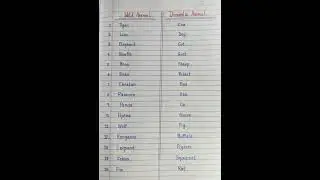 Wild Animal Domestic Animal
1. Tiger Cow
2. Lion Dog
3. Elephant Cat
4. Goat
5. Rhino Sheep
6. Bear Rabbit
7.
8.
9. Panda Ox
10. Hyena Horse
11. Wolf Pig
12. Kangaroo Buffalo
13. Leopard Pigeon
14. Zebra Squirrel
15. Fox Rat